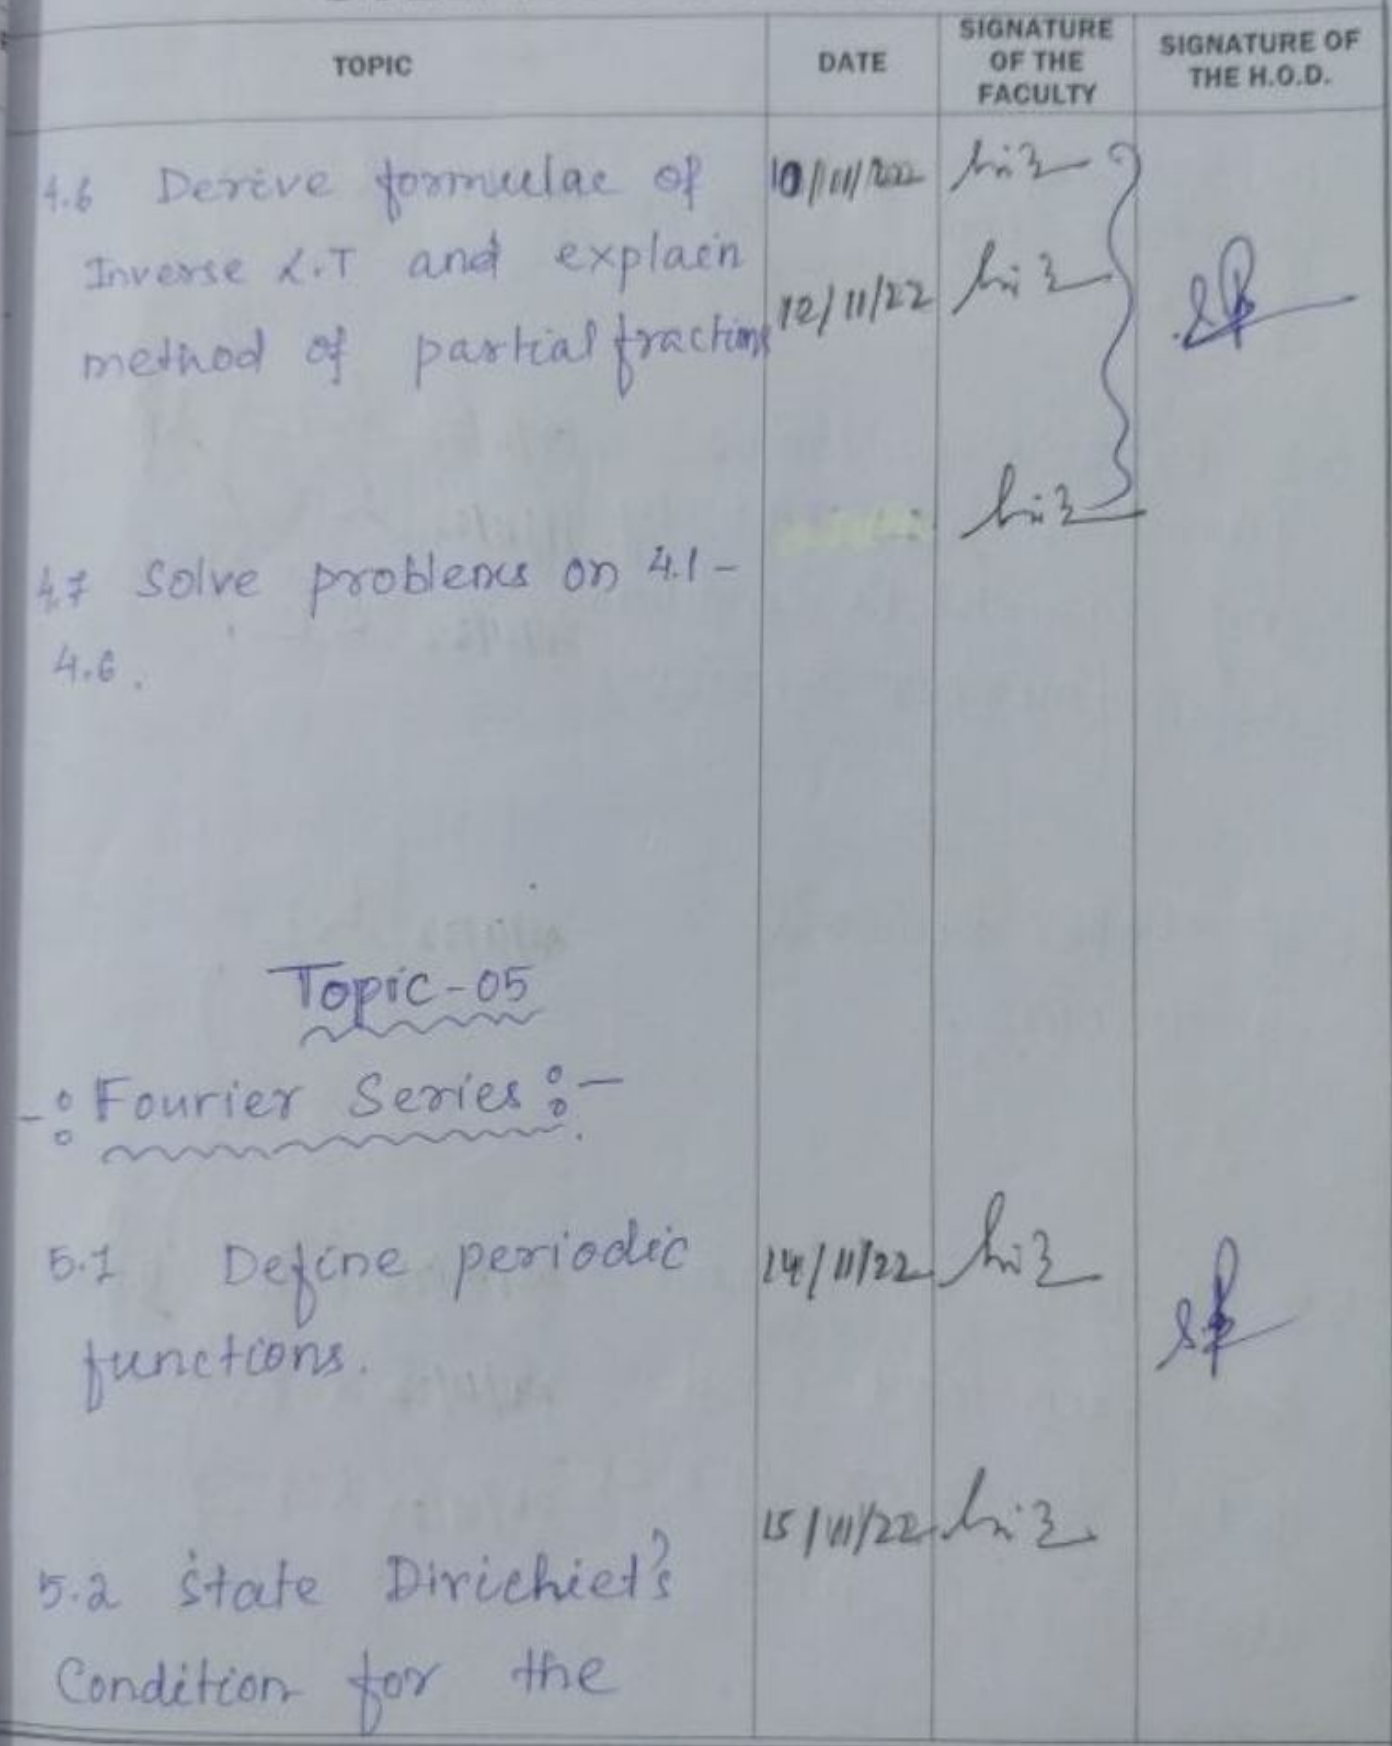 TOPIC
DATE
SIGNATURE
OF THE
FACULTY
SIGNATURE OF
THE H.O.D.
4.6 Derive formulae of
10/11/2022
Inverse L.T and explain
12/11/22
method of partial fractions
4.7 Solve problems on 4.1 -
4.6.
Topic-05
-: Fourier Series :-
5.1 Define periodic
14/11/22
functions.
15/11/22
5.2 State Dirichiet's
Condition for the